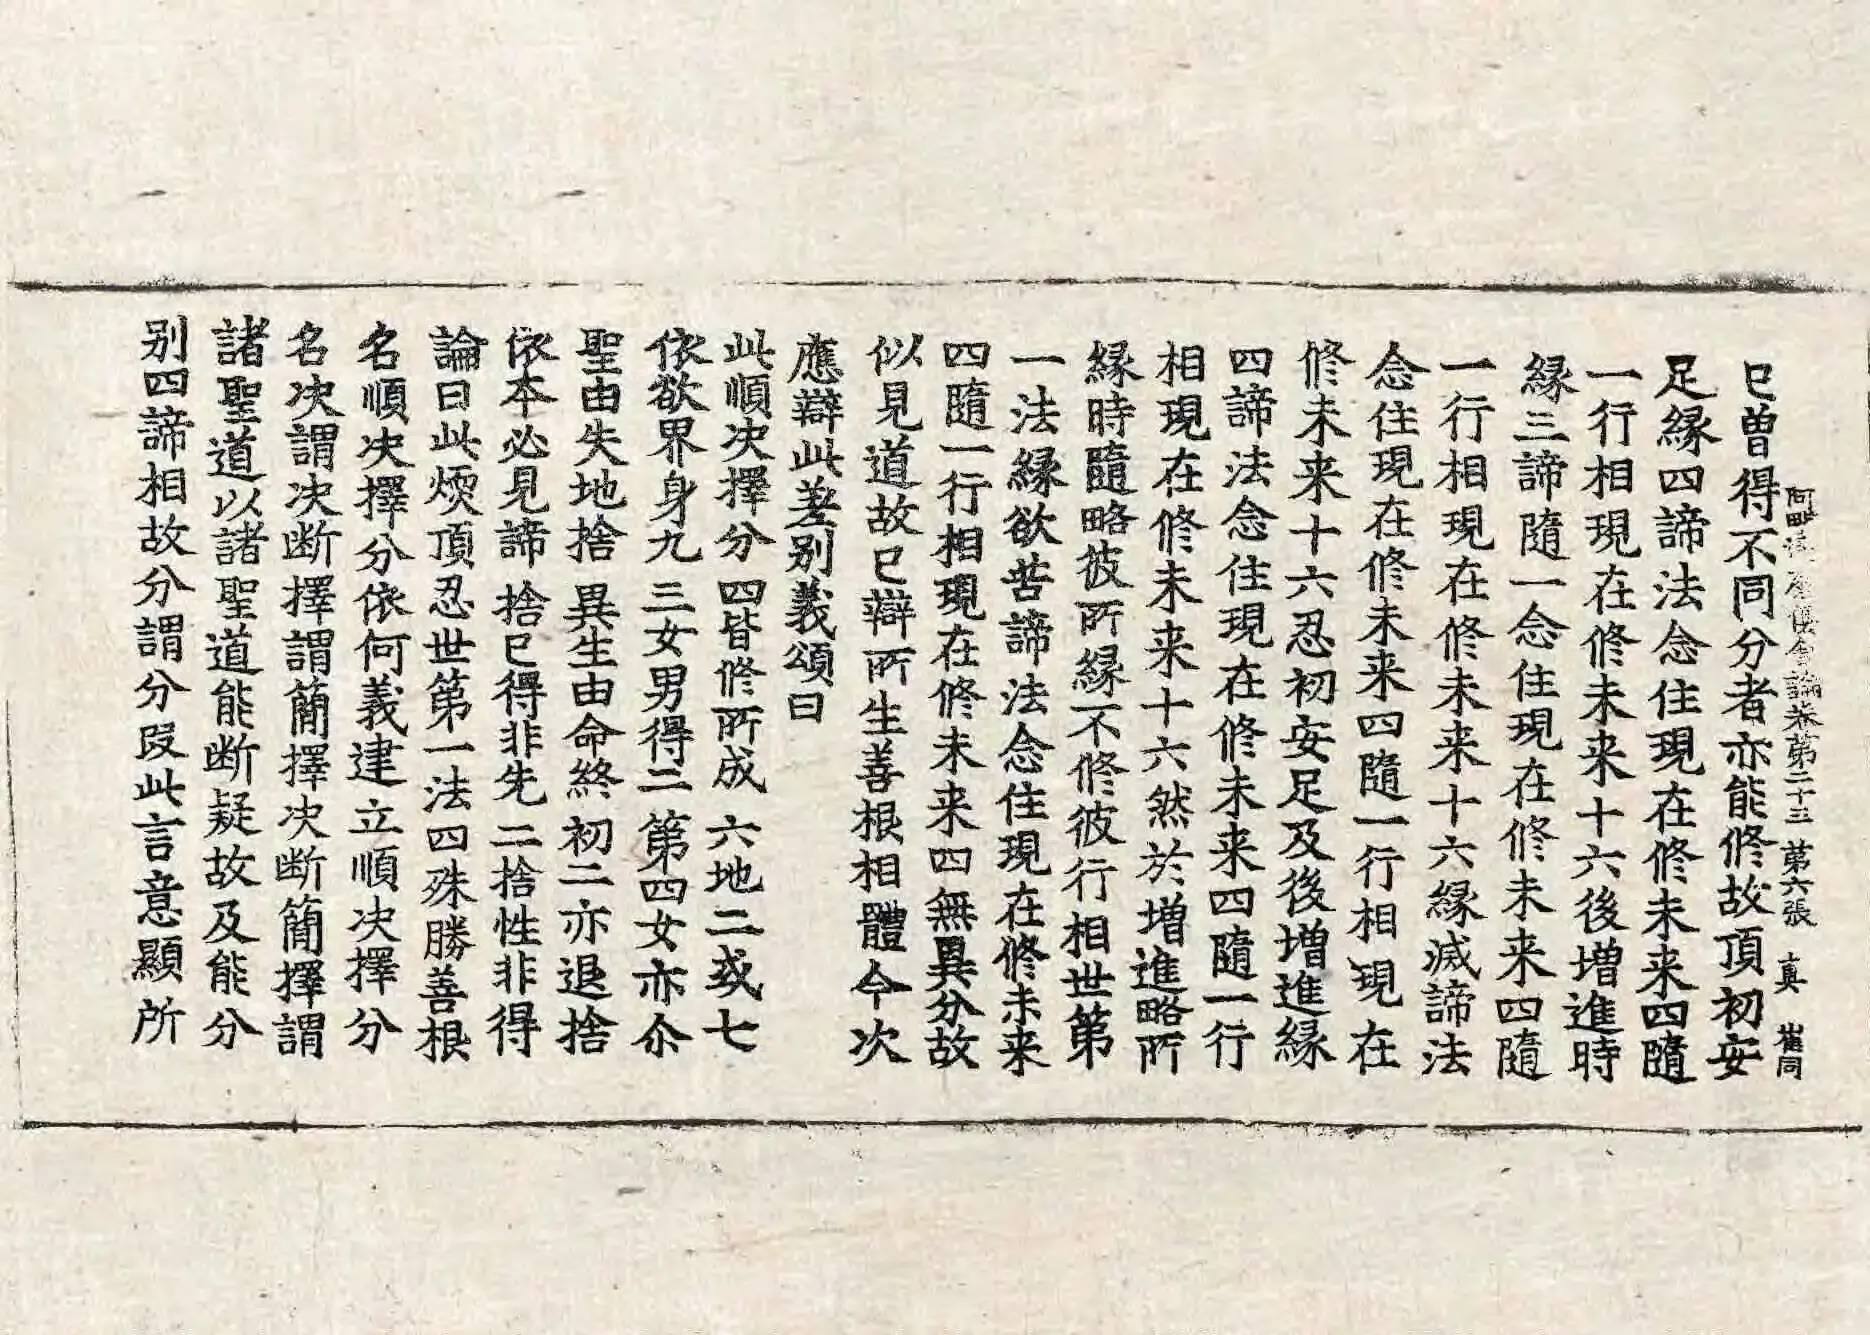 阿毗達磨俱舍論卷第二十三 第六張 真 崔同
已曽得不同分者亦能修故頂初安
足縁四諦法念住現在修未来四隨
一行相現在修未来十六後増進時
縁三諦隨一念住現在修未来四隨
一行相現在修未来十六縁滅諦法
念住現在修未来四隨一行相現在
修未来十六忍初安足及後増進縁
四諦法念住現在修未来四隨一行
相現在修未来十六然於増進略所
縁時隨略彼所縁不修彼行相世第
一法縁欲苦諦法念住現在修未来
四隨一行相現在修未来四無異分故
似見道故已辯所生善根相體今次
應辯此差别義頌曰
此順决擇分 四皆修所成 六地二或七
依欲界身九 三女男得二 第四女亦尒
聖由失地捨 異生由命終 初二亦退捨
依本必見諦 捨已得非先 二捨性非得
論曰此煗頂忍世第一法四殊勝善根
名順决擇分依何義建立順决擇分
名决謂决断擇謂簡擇决断簡擇謂
諸聖道以諸聖道能断疑故及能分
别四諦相故分謂分段此言意顯所